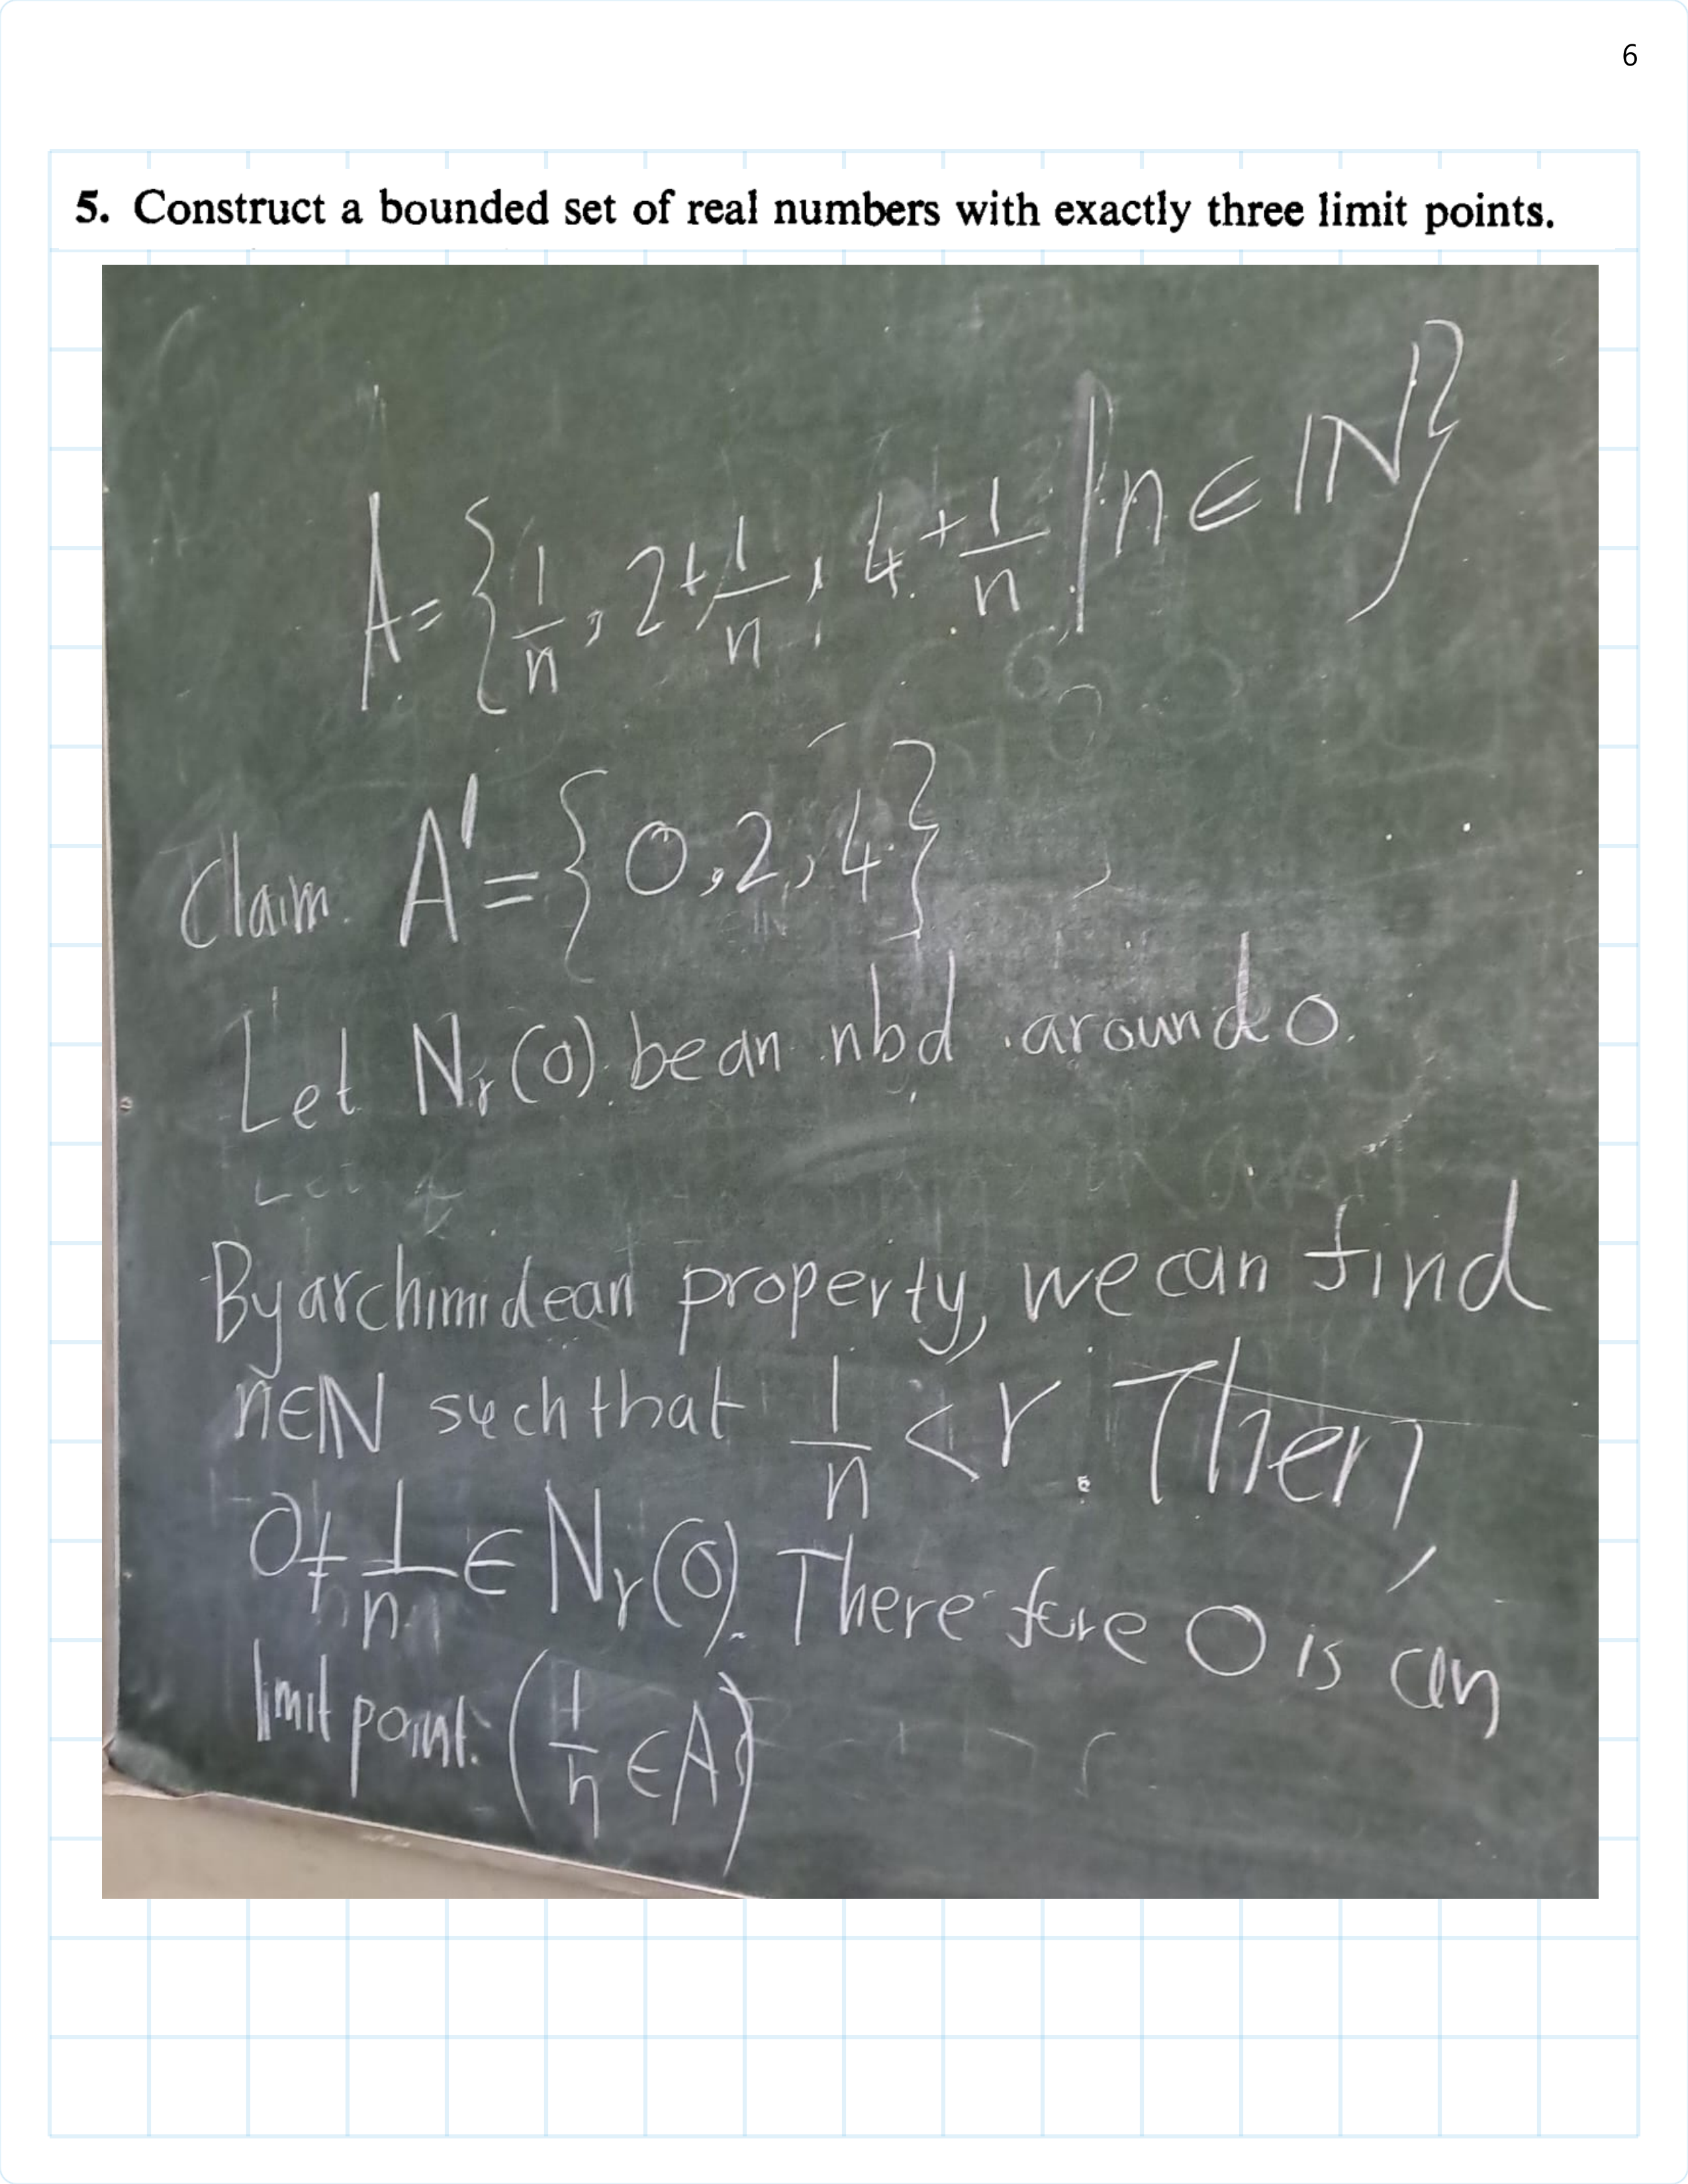 6
5. Construct a bounded set of real numbers with exactly three limit points.
A = { 1/n , 2+1/n , 4+1/n | n ∈ ℕ }
Claim. A' = { 0, 2, 4 }
Let Nr(0) be an nbd around 0.
By archimidean property, we can find
n∈ℕ such that 1/n < r. Then,
0 ≠ 1/n ∈ Nr(0). Therefore 0 is an
limit point. (1/n ∈ A)